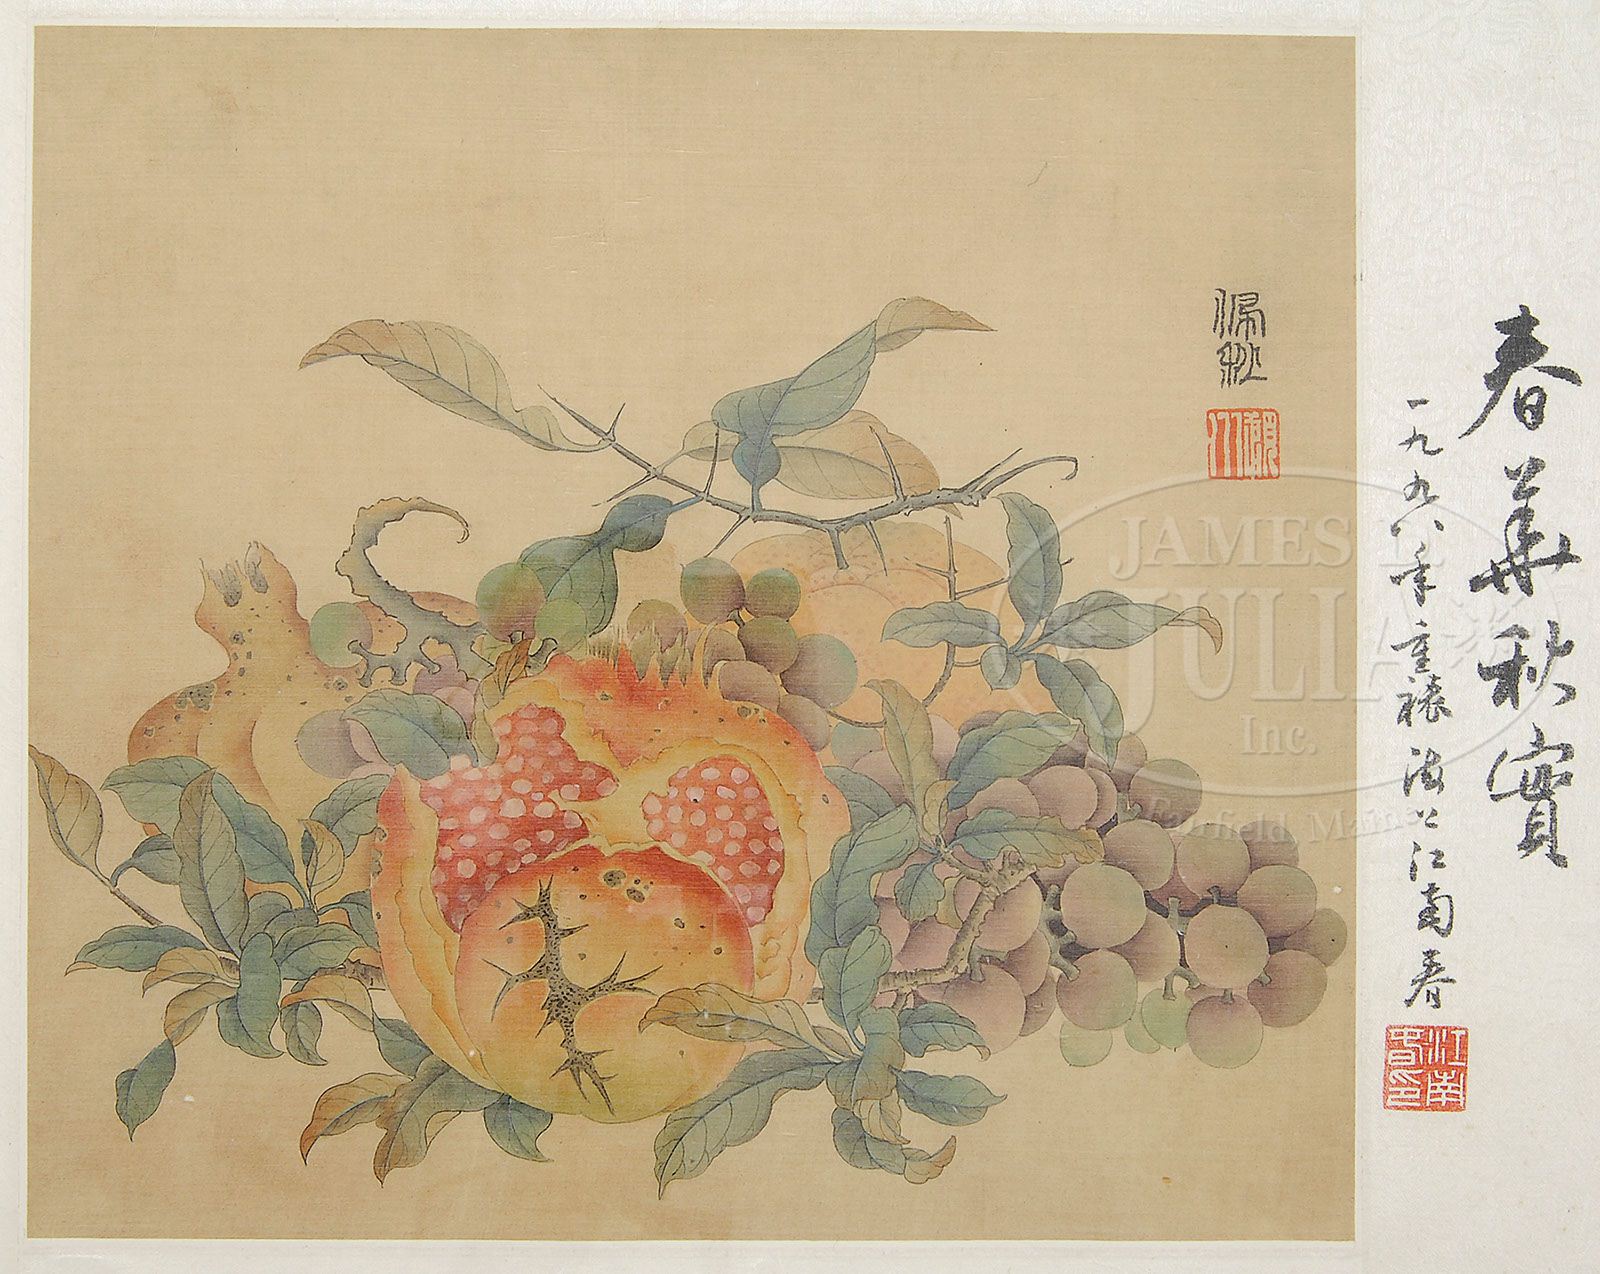 春華秋實
一九九八年重裱
江南春
江南
春印
佩秋
顧
JAMES D.
JULIA
Inc.
Fairfield, Maine